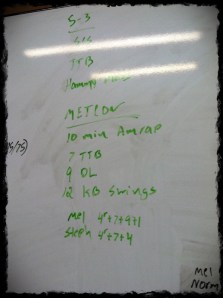 S-3
TTB
METCON
10 min Amrap
7 TTB
9 DL
12 KB Swings
Mel 4⁵+7+9+1
4⁵+7+4
Mel
Norm